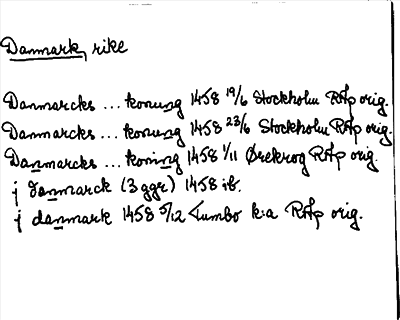 Danmark, rike
Danmarcks ... konung 1458 19/6 Stockholm RAp orig.
Danmarcks ... konung 1458 23/6 Stockholm RAp orig.
Danmarcks ... koning 1458 1/11 Ørekrog RAp orig.
j danmarck (3 ggr) 1458 ib.
j danmark 1458 5/12 Tumbo k:a RAp orig.